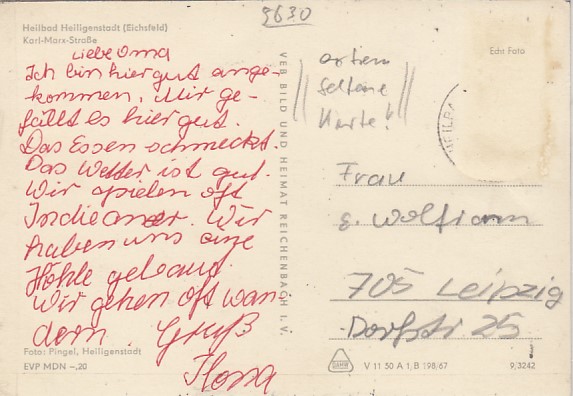 5630
Heilbad Heiligenstadt (Eichsfeld)
Karl-Marx-Straße
Liebe Oma
Ich bin hier gut ange-
kommen. Mir ge-
fällt es hier gut.
Das Essen schmeckt.
Das Wetter ist gut.
Wir spielen oft
Indieaner. Wir
haben uns eine
Höhle gebaut.
Wir gehen oft wan-
dern. Gruß
Ilona
Foto: Pingel, Heiligenstadt
EVP MDN –,20
VEB BILD UND HEIMAT REICHENBACH I. V.
Echt Foto
seltene
Karte!
Frau
g. Wolfram
705 Leipzig
Dorfstr 25
V 11 50 A 1/B 198/67
9/3242